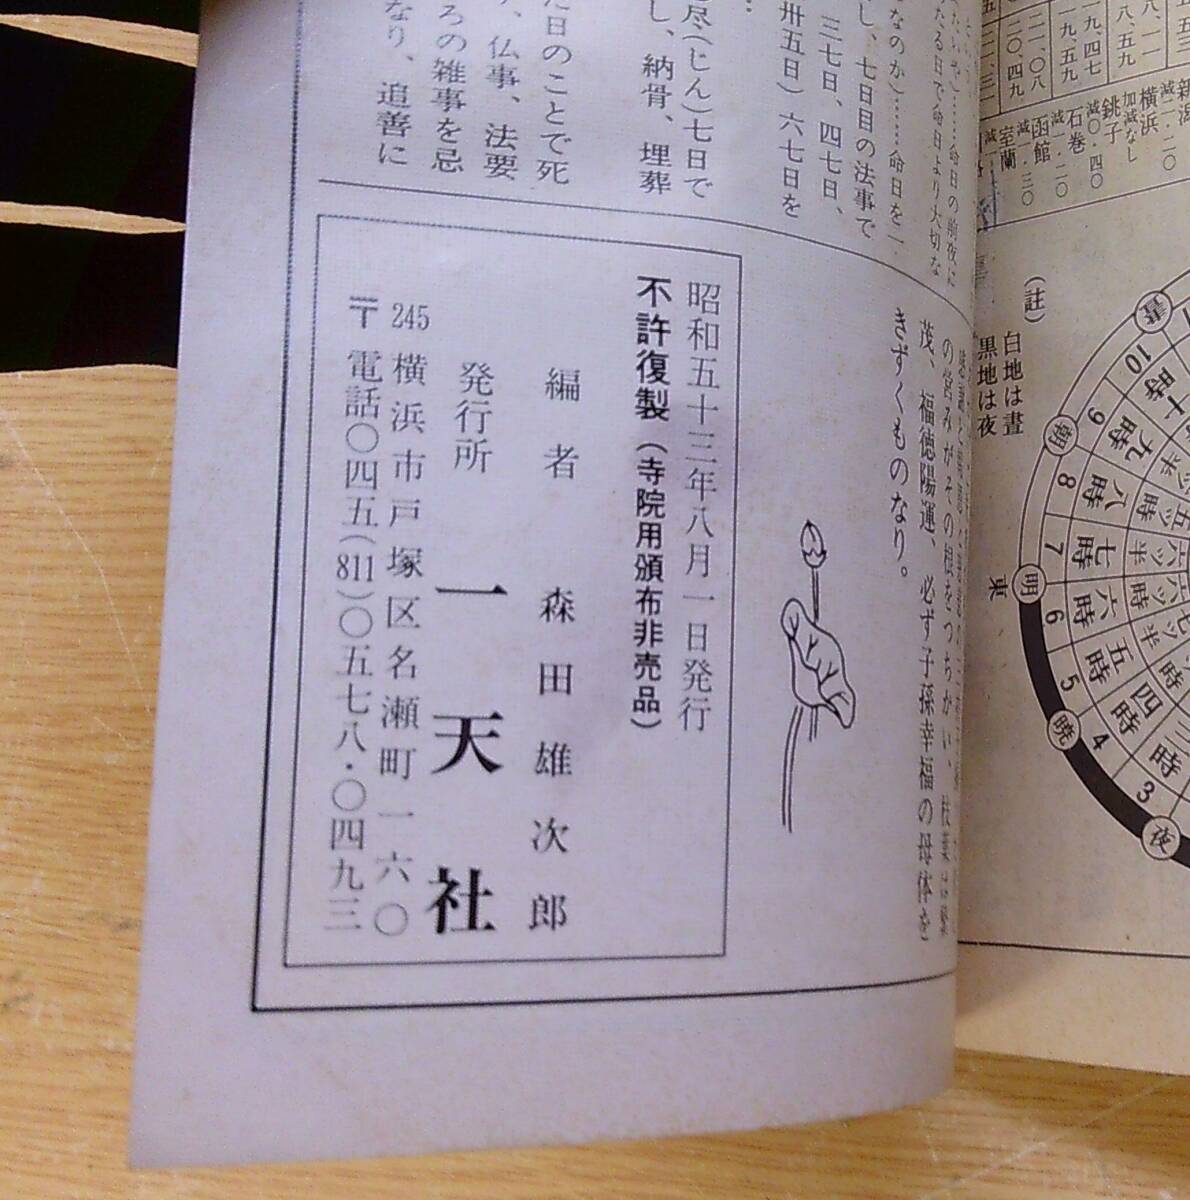 新潟
減一・二〇
横浜
加減なし
銚子
減〇・四〇
石巻
減一・二〇
函館
減一・三〇
室蘭
(註)
白地は昼
黒地は夜
昼
朝
明
東
暁
夜
10
9
8
7
6
5
4
3
十時
九時
八時
七時
六時
五時
四時
……命日の前夜に
たる日で命日より大切な
なのか)……命日を一
し、七日目の法事で
三七日、四七日、
卅五日)六七日を
尽(じん)七日で
し、納骨、埋葬
た日のことで死
、仏事、法要
ろの雑事を忌
なり、追善に
の営みがその根をつちかい、枝葉は繁
茂、福徳陽運、必ず子孫幸福の母体を
きずくものなり。
昭和五十三年八月一日発行
不許復製(寺院用頒布非売品)
編者 森田雄次郎
発行所 一天社
245 横浜市戸塚区名瀬町一六〇
〒 電話〇四五(811)〇五七八・〇四九三